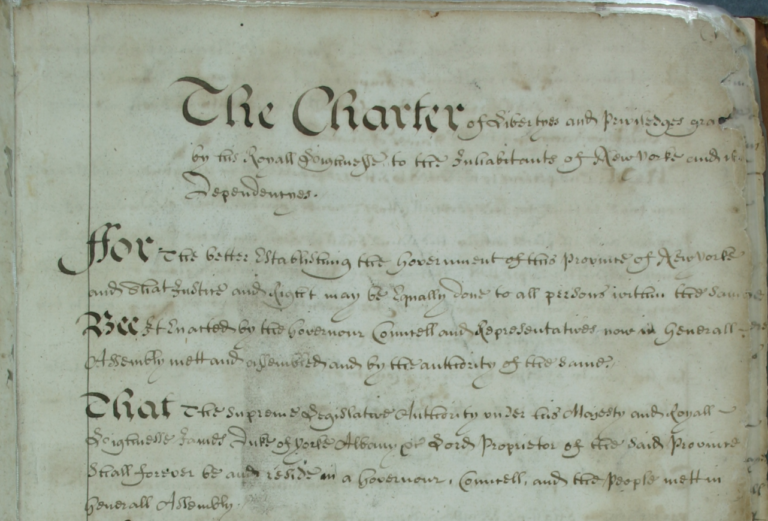 The Charter of Libertyes and Priviledges gra
by his Royall Highnesse to the Inhabitants of New Yorke and its
Dependencyes.
ffor The better Establishing the Government of this Province of New Yorke
and that Justice and Right may be Equally done to all persons within the same
Bee It Enacted by the Governour Councell and Representatives now in Generall
Assembly mett and assembled and by the authority of the same.
That The Supreme Legislative Authority under his Majesty and Royall
Highnesse James Duke of Yorke Albany &c Lord Proprietor of the said Province
Shall forever be and reside in a Governour, Councell, and the People mett in
Generall Assembly.